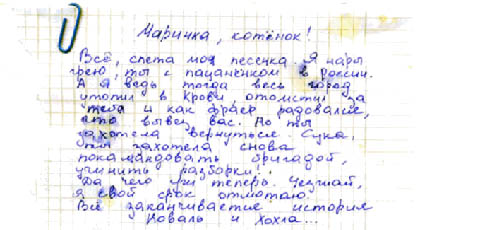 Маринка, котёнок!
Всё, спета моя песенка. Я нары
грею, ты с пацанёнком в россии.
А я ведь тогда весь город
утопил в крови отомстил за
тебя и как фраер радовалис,
что вывел вас. Но ты
захотела вернуться. Сука,
ты захотела снова
покамандовать бригадой,
учинить разборки!
Да чего уж теперь.
я свой срок отмотаю.
Всё заканчивается история
Коваль и Хохла...